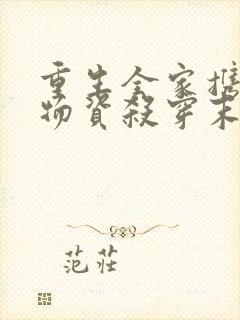 重生全家携
物資殺穿末
范莊